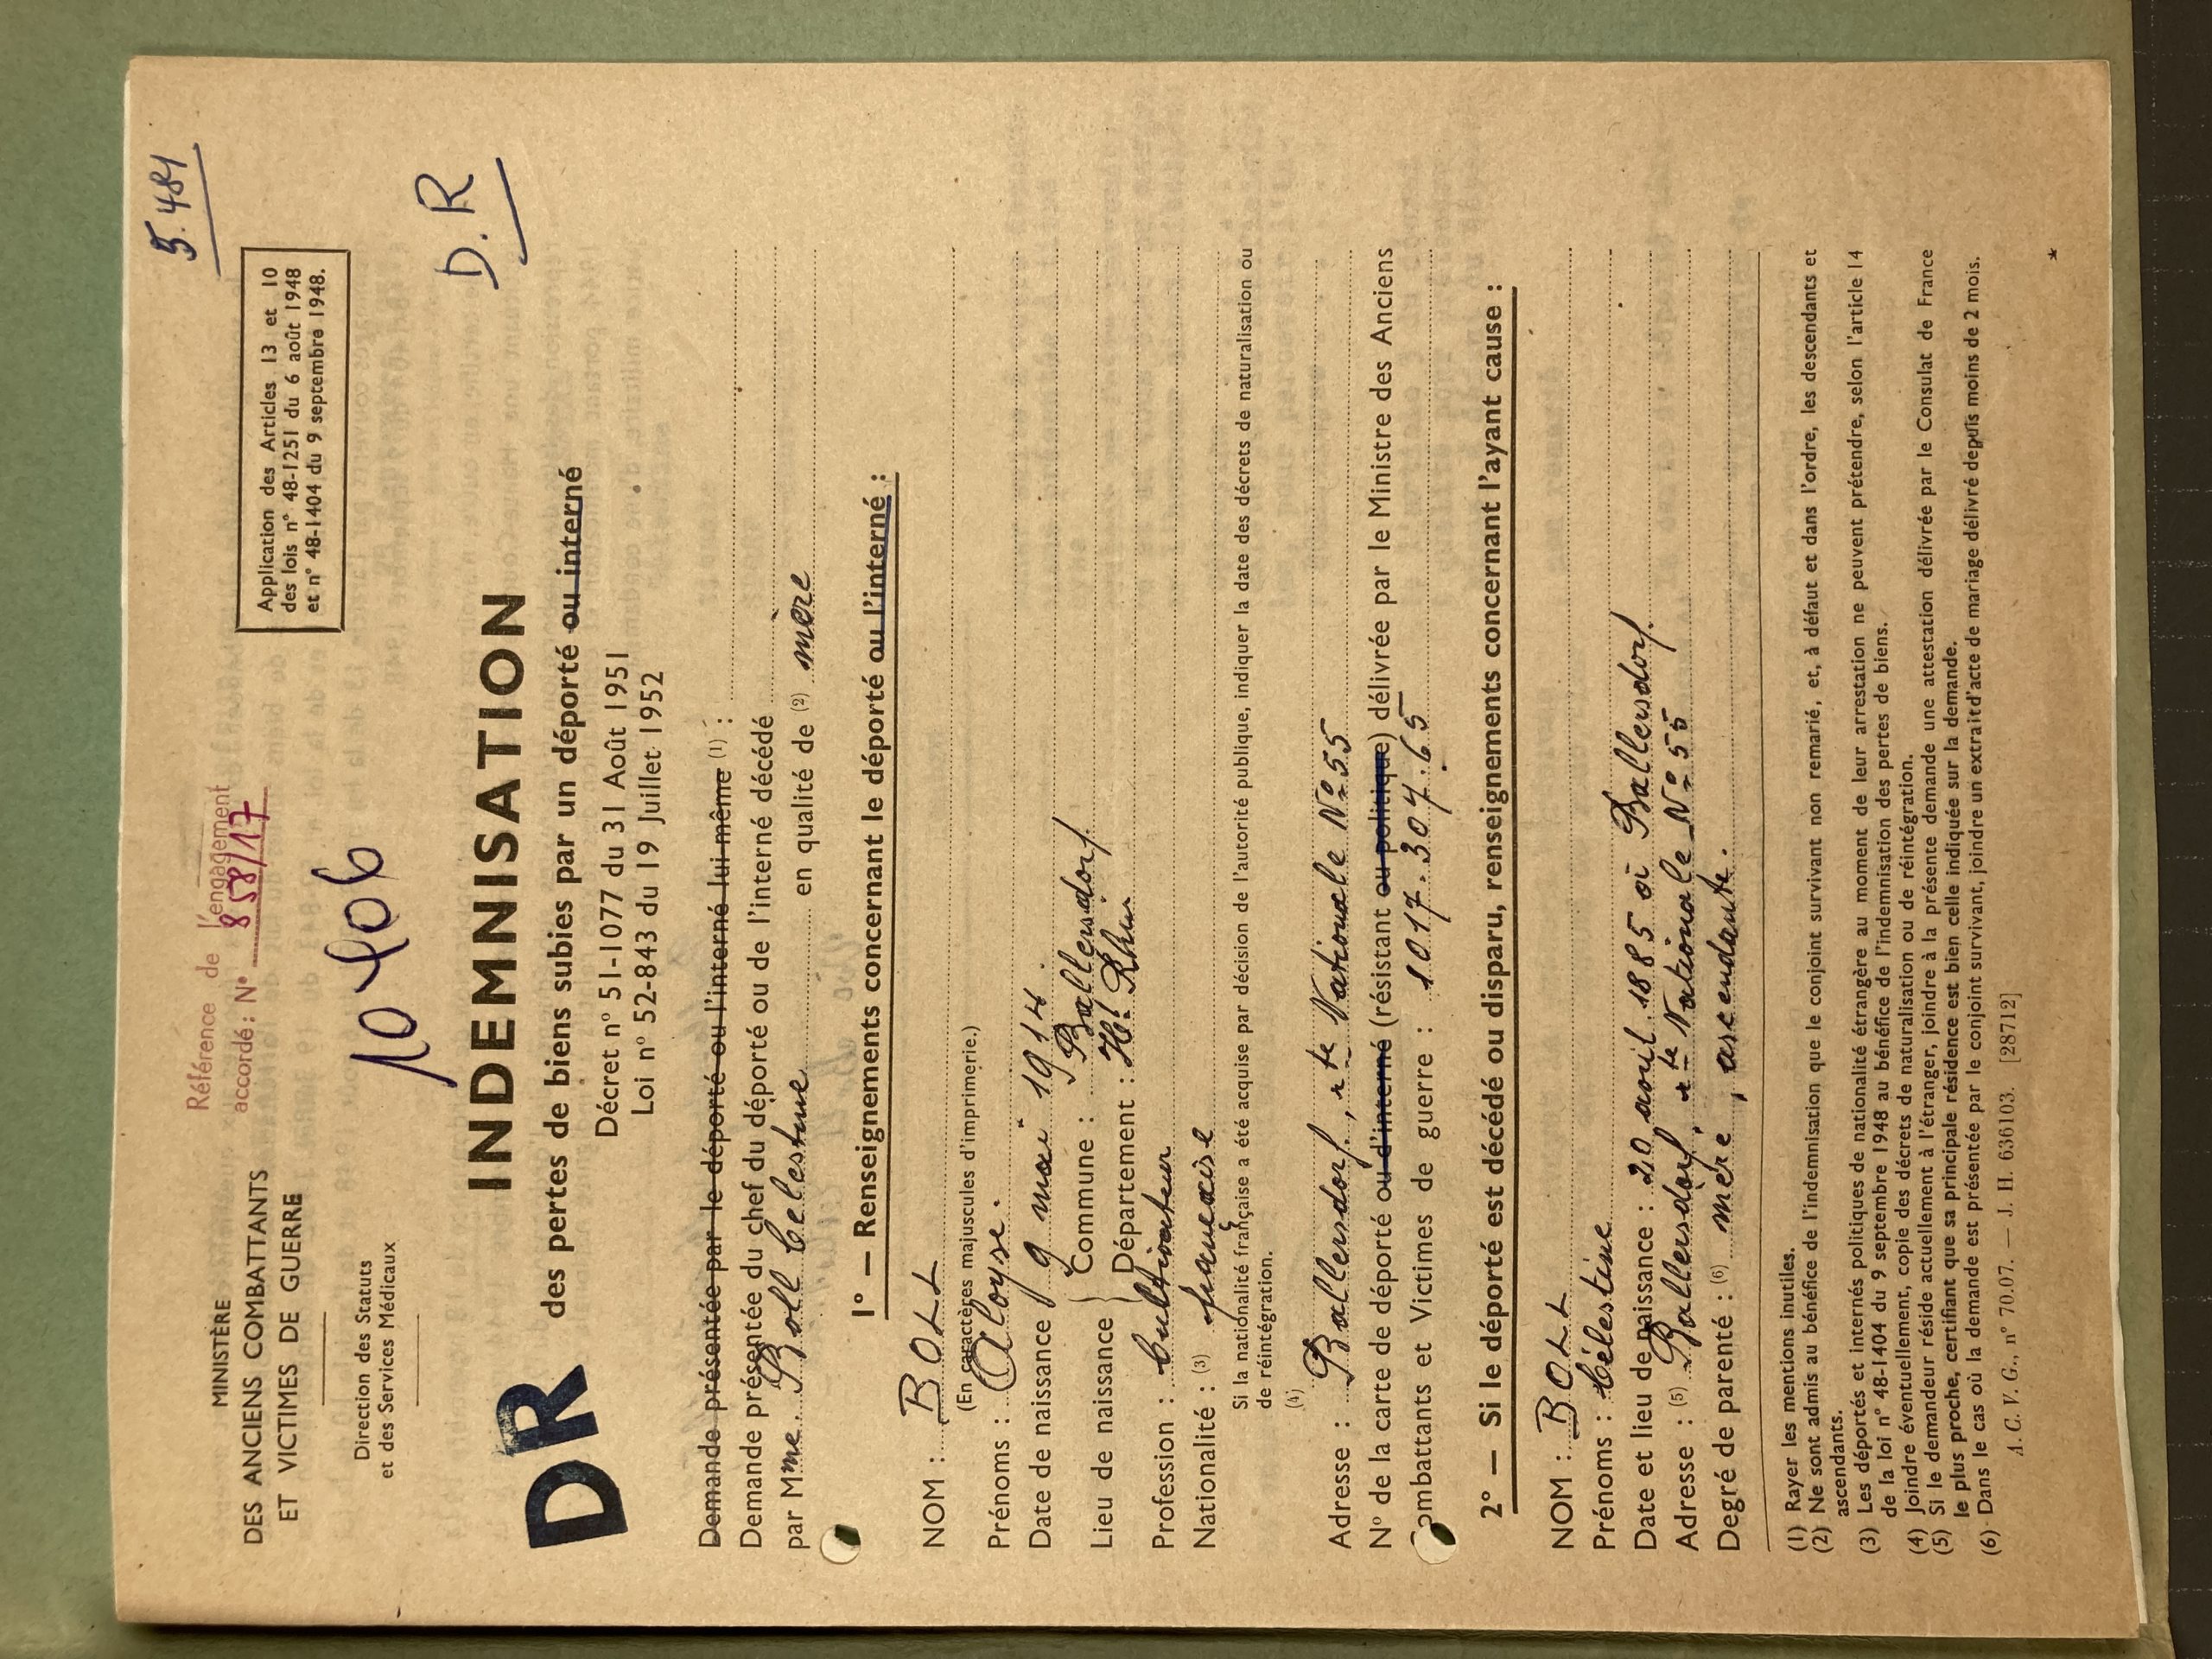 5.481
Référence de l'engagement
accordé : N° 858/17
MINISTÈRE
DES ANCIENS COMBATTANTS
ET VICTIMES DE GUERRE
Direction des Statuts
et des Services Médicaux
Application des Articles 13 et 10
des lois n° 48-1251 du 6 août 1948
et n° 48-1404 du 9 septembre 1948.
10406
D.R
DR
INDEMNISATION
des pertes de biens subies par un déporté ou interné
Décret n° 51-1077 du 31 Août 1951
Loi n° 52-843 du 19 Juillet 1952
Demande présentée par le déporté ou l'interné lui-même (1) :
Demande présentée du chef du déporté ou de l'interné décédé
par Mme. Boll Célestine en qualité de (2) mère
1° — Renseignements concernant le déporté ou l'interné :
NOM : BOLL
(En caractères majuscules d'imprimerie.)
Prénoms : Aloyse.
Date de naissance 9 mai 1914.
Lieu de naissance { Commune : Ballersdorf.
Département : Ht Rhin
Profession : Cultivateur
Nationalité : (3) française
Si la nationalité française a été acquise par décision de l'autorité publique, indiquer la date des décrets de naturalisation ou
de réintégration.
(4)
Adresse : Ballersdorf, rte Nationale N° 55
N° de la carte de déporté ou d'interné (résistant ou politique) délivrée par le Ministre des Anciens
Combattants et Victimes de guerre : 1017.307.65
2° — Si le déporté est décédé ou disparu, renseignements concernant l'ayant cause :
NOM : BOLL
Prénoms : Célestine
Date et lieu de naissance : 20 avril 1885 à Ballersdorf.
Adresse : (5) Ballersdorf, rte Nationale N° 55
Degré de parenté : (6) mère, ascendante.
(1) Rayer les mentions inutiles.
(2) Ne sont admis au bénéfice de l'indemnisation que le conjoint survivant non remarié, et, à défaut et dans l'ordre, les descendants et
ascendants.
(3) Les déportés et internés politiques de nationalité étrangère au moment de leur arrestation ne peuvent prétendre, selon l'article 14
de la loi n° 48-1404 du 9 septembre 1948 au bénéfice de l'indemnisation des pertes de biens.
(4) Joindre éventuellement, copie des décrets de naturalisation ou de réintégration.
(5) Si le demandeur réside actuellement à l'étranger, joindre à la présente demande une attestation délivrée par le Consulat de France
le plus proche, certifiant que sa principale résidence est bien celle indiquée sur la demande.
(6) Dans le cas où la demande est présentée par le conjoint survivant, joindre un extrait d'acte de mariage délivré depuis moins de 2 mois.
A. C. V. G., n° 70.07. — J. H. 636103. [28712]
*